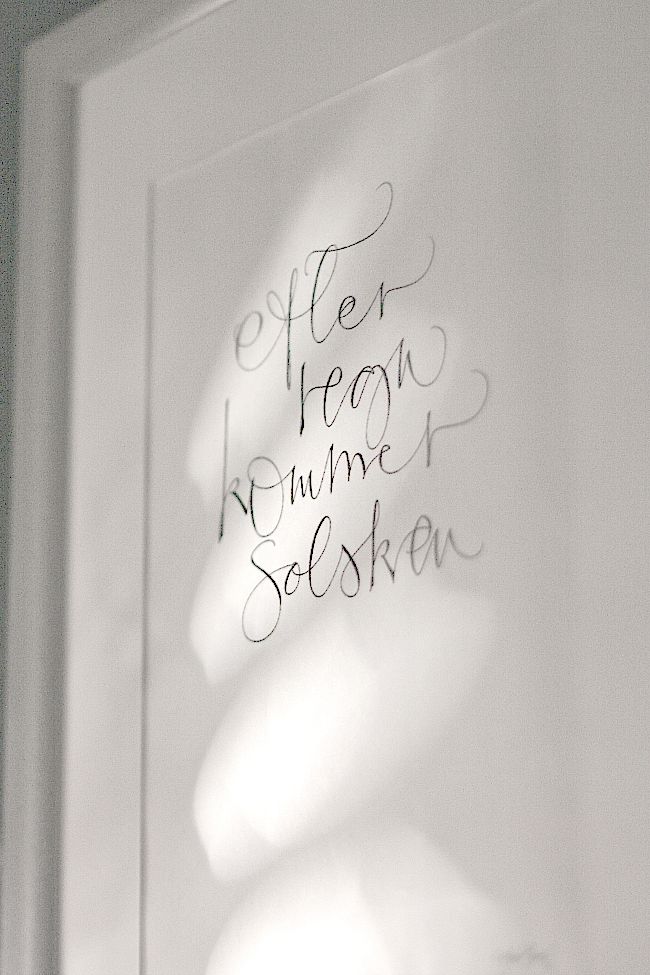 efter
regn
kommer
Solsken